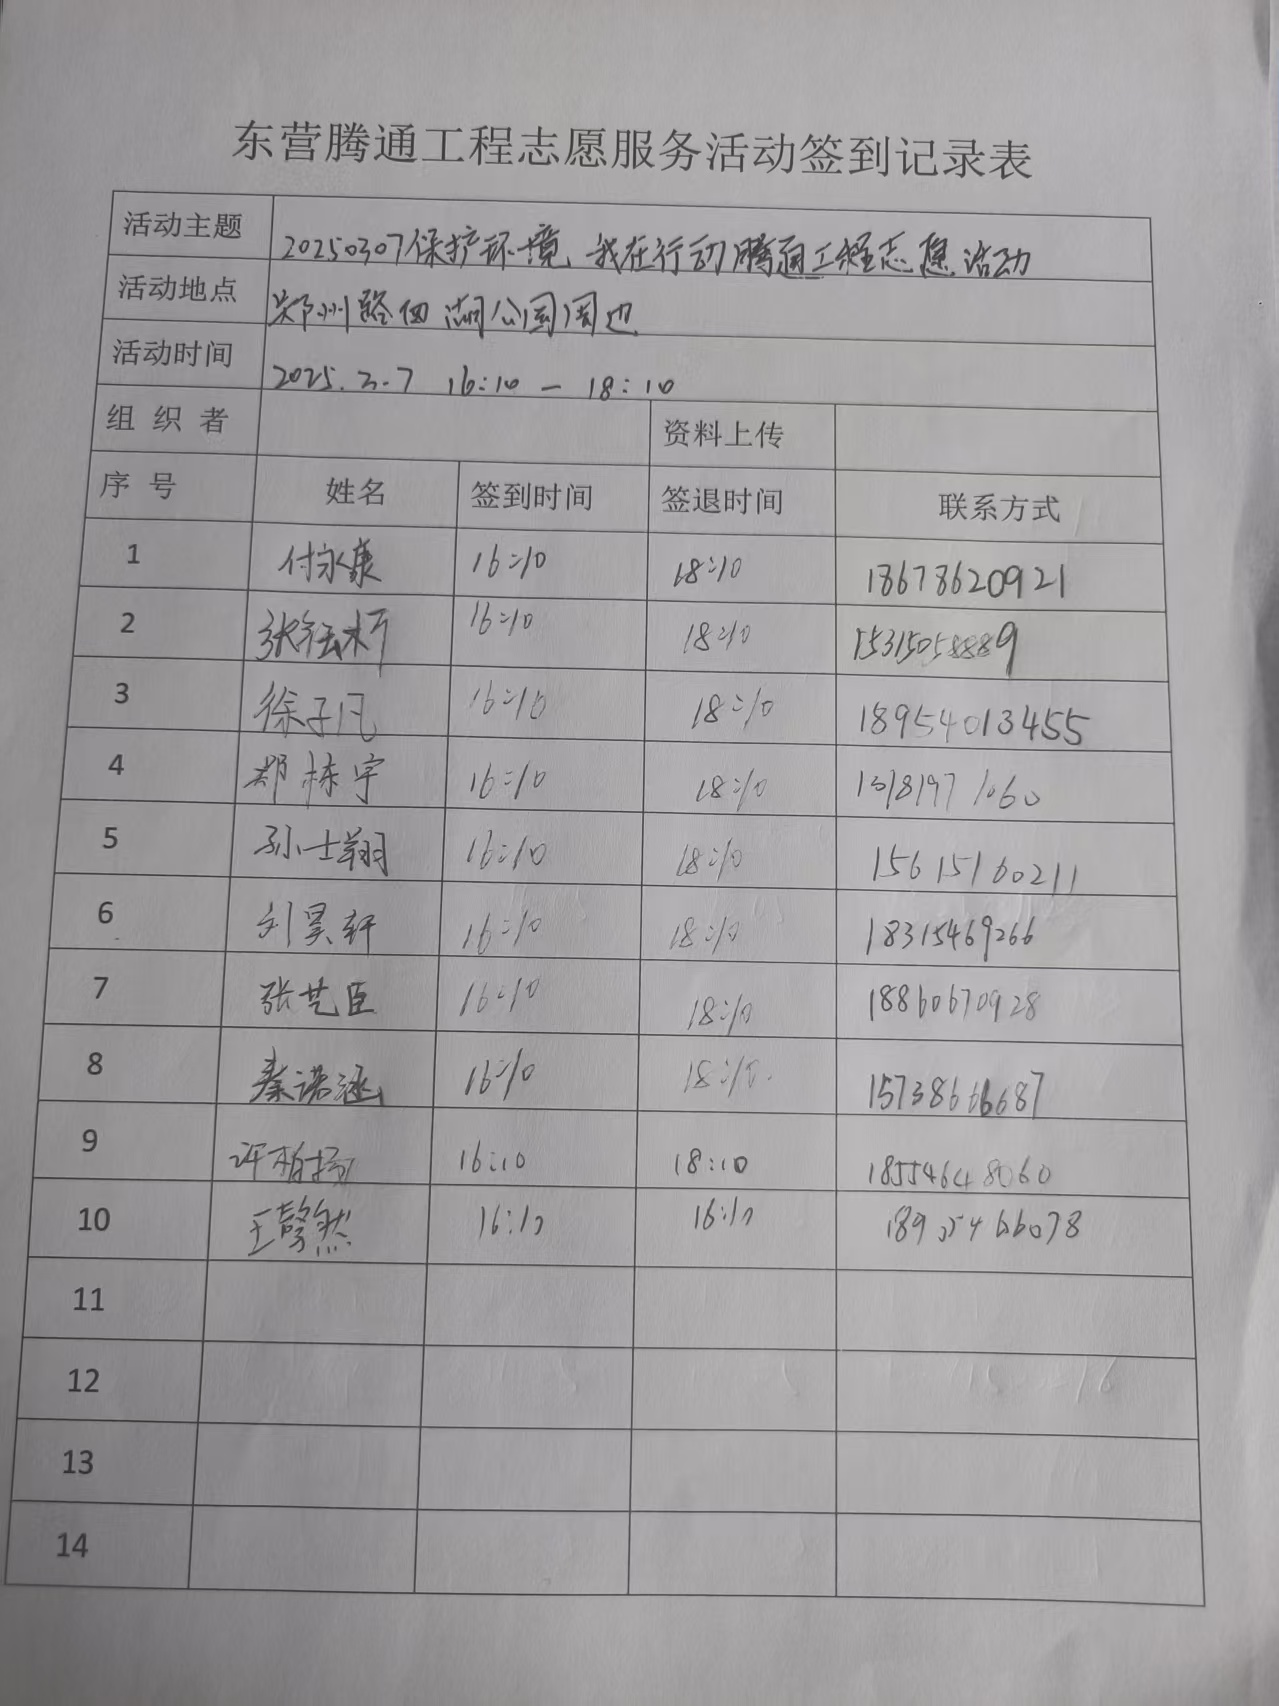 东营腾通工程志愿服务活动签到记录表
活动主题 20250307保护环境 我在行动腾通工程志愿活动
活动地点 郑州路西湖公园周边
活动时间 2025.3.7 16:10 — 18:10
组织者 资料上传
序号 姓名 签到时间 签退时间 联系方式
1 付永康 16:10 18:10 18678620921
2 16:10 18:10 15315058889
3 徐子凡 16:10 18:10 18954013455
4 郑栋宇 16:10 18:10
5 孙士翔 16:10 18:10 15615160211
6 刘昊轩 16:10 18:10 18315469266
7 张艺臣 16:10 18:10 18860670928
8 秦诺涵 16:10 18:10 15738666687
9 许柏扬 16:10 18:10 18554648060
10 王馨然 16:10 16:10
11
12
13
14